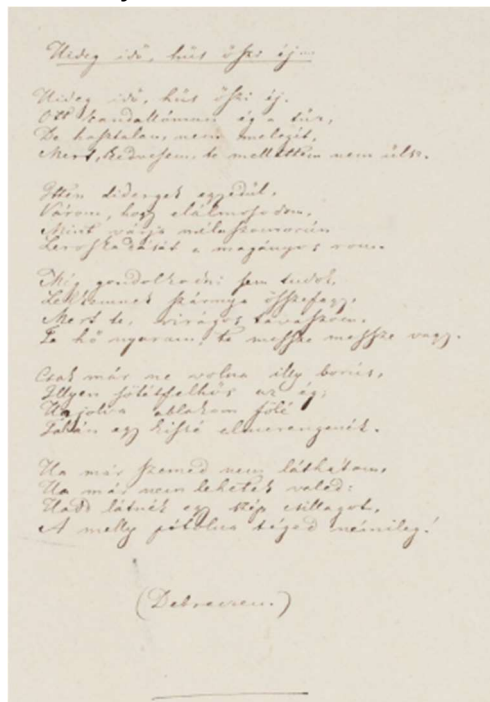 Hideg idő, hüs őszi éj...
Hideg idő, hüs őszi éj.
Ott kandallómban ég a tűz,
De hasztalan, nem melegít,
Mert, kedvesem, te mellettem nem ülsz.
Itten didergek egyedül,
Várom, hogy elálmosodom,
Mint várja mélaszomorún
Leroskadását a magányos rom.
Még gondolkodni sem tudok,
Lelkemnek szárnya összefagy,
Mert te, virágos tavaszom,
Te hő nyaram, te messze messze vagy.
Csak már ne volna illy borús,
Illyen sötétfelhős az ég;
Kihajolva ablakom fölé
Talán egy kissé elmerengenék.
Ha már szemed nem láthatom,
Ha már nem lehetek veled:
Hadd látnék egy szép csillagot,
A melly pótolna téged némileg!
(Debreczen.)